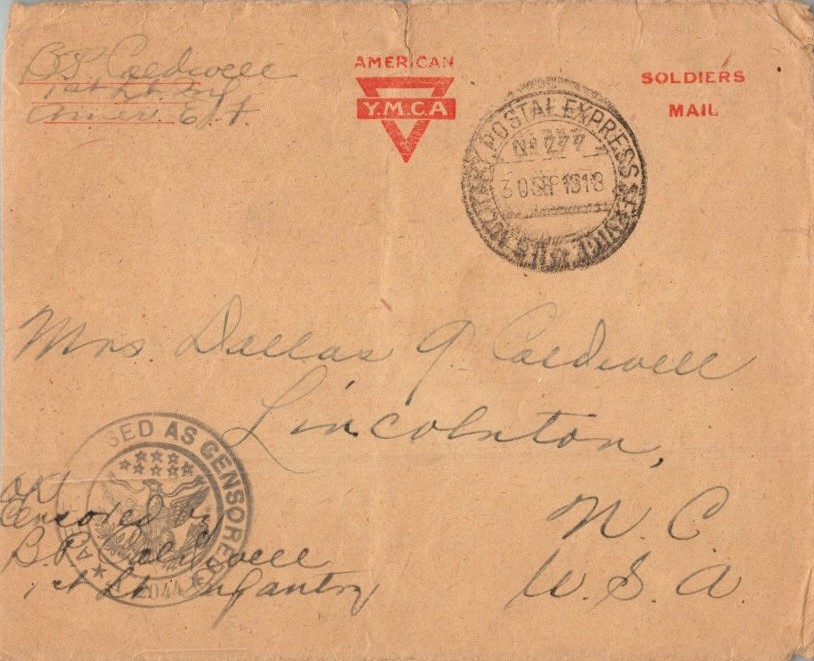 B.P. Caldwell
1st Lt. Inf.
Amer. E.F.
AMERICAN
Y.M.C.A
SOLDIERS
MAIL
MILITARY POSTAL EXPRESS SERVICE U.S.
No 277
30 SEP 1918
Mrs. Dallas J. Caldwell
Lincolnton,
N.C.
U.S.A.
SED AS CENSORE
A.E.
2044
Censored by
B.P. Caldwell
1st Lt. Infantry